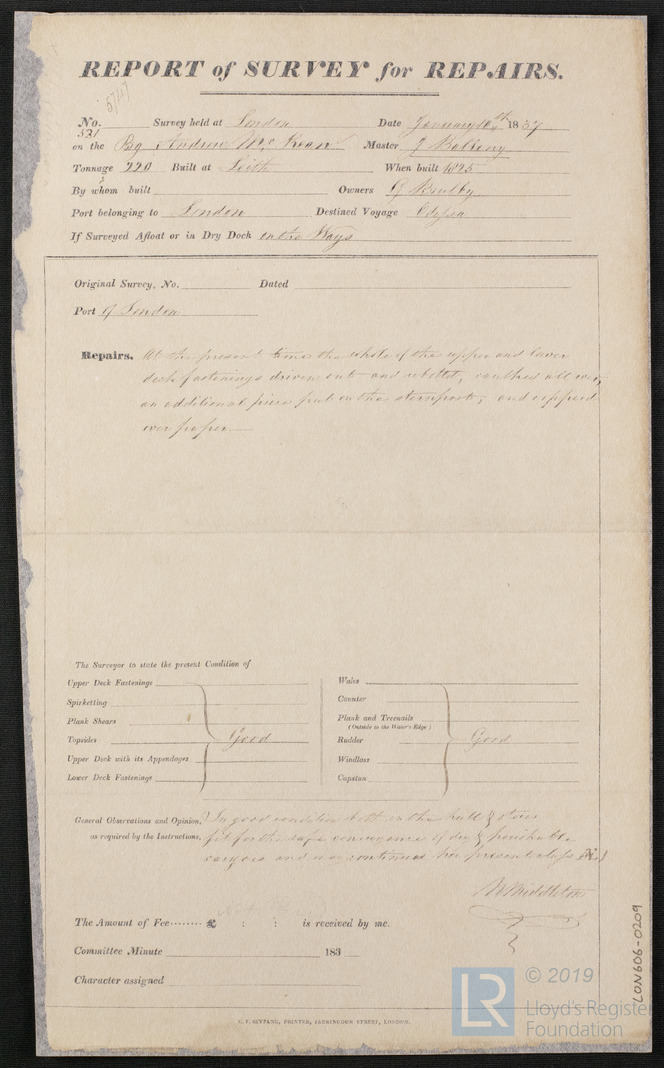 REPORT of SURVEY for REPAIRS.
5747
No. 521 Survey held at London Date January 10th 1837
on the Bg Andrew Mc Kean Master J
Tonnage 220 Built at Leith When built 1825
By whom built ? Owners G
Port belonging to London Destined Voyage Odessa
If Surveyed Afloat or in Dry Dock on the Ways
Original Survey, No. Dated
Port of London
Repairs. At the present time the whole of the upper and lower
deck fastenings driven out and rebolted, caulked all over,
an additional piece put on the sternpost, and coppered
over paper
The Surveyor to state the present Condition of
Upper Deck Fastenings
Spirketting
Plank Shears
Topsides Good
Upper Deck with its Appendages
Lower Deck Fastenings
Wales
Counter
Plank and Treenails
(Outside to the Water's Edge)
Rudder Good
Windlass
Capstan
General Observations and Opinion, In good condition both in the hull & stores
as required by the Instructions, fit for the safe conveyance of dry & perishable
cargoes and may continue her present class
W Middleton
The Amount of Fee ........ £ : : is received by me.
Committee Minute 183
Character assigned
C. F. SEYFANG, PRINTER, FARRINGDON STREET, LONDON.
LON606-0209
LR © 2019
Lloyd's Register
Foundation